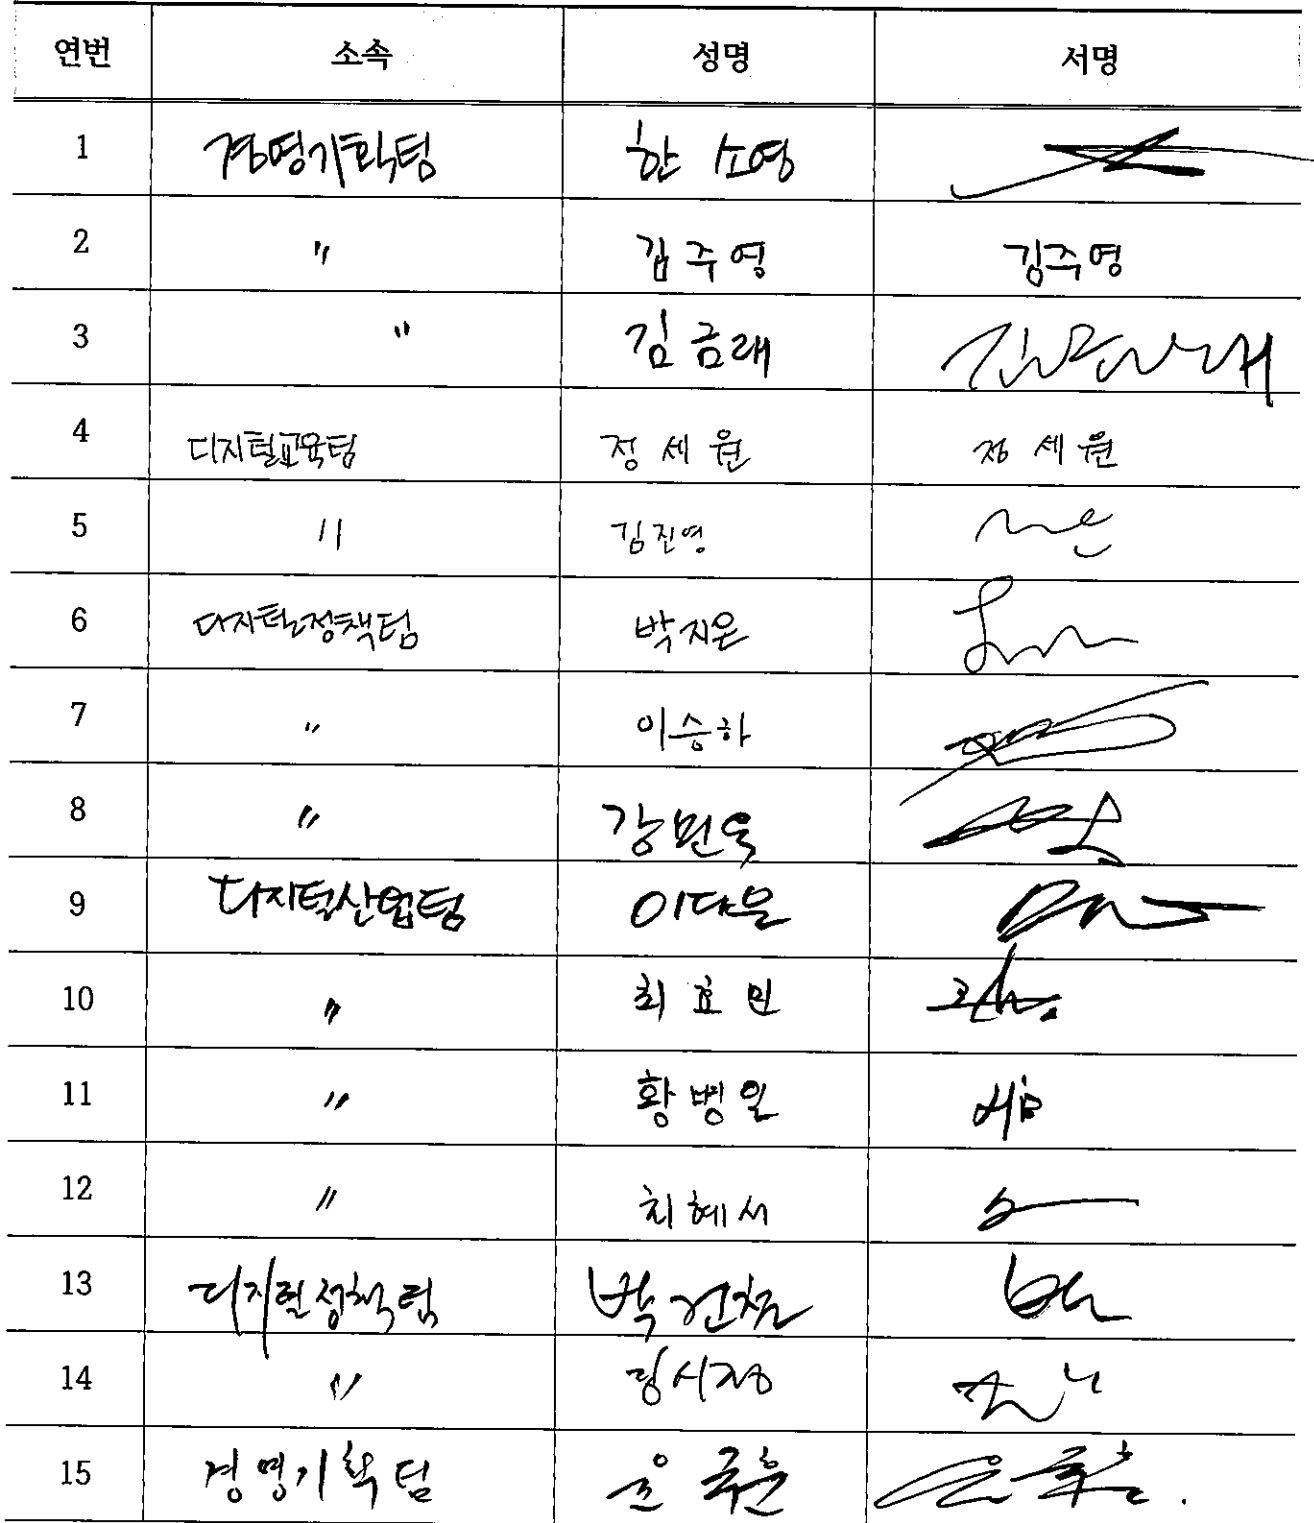 연번 소속 성명 서명
1 경영기획팀 한소영
2 〃 김주영 김주영
3 〃 김금래 김금래
4 디지털교육팀 정세원 정세원
5 〃 김진영
6 디지털정책팀 박지은
7 〃 이승하
8 〃 강민욱
9 디지털산업팀 이다운
10 〃 최효민
11 〃 황병일
12 〃 최혜서
13 디지털정책팀
14 〃
15 경영기획팀